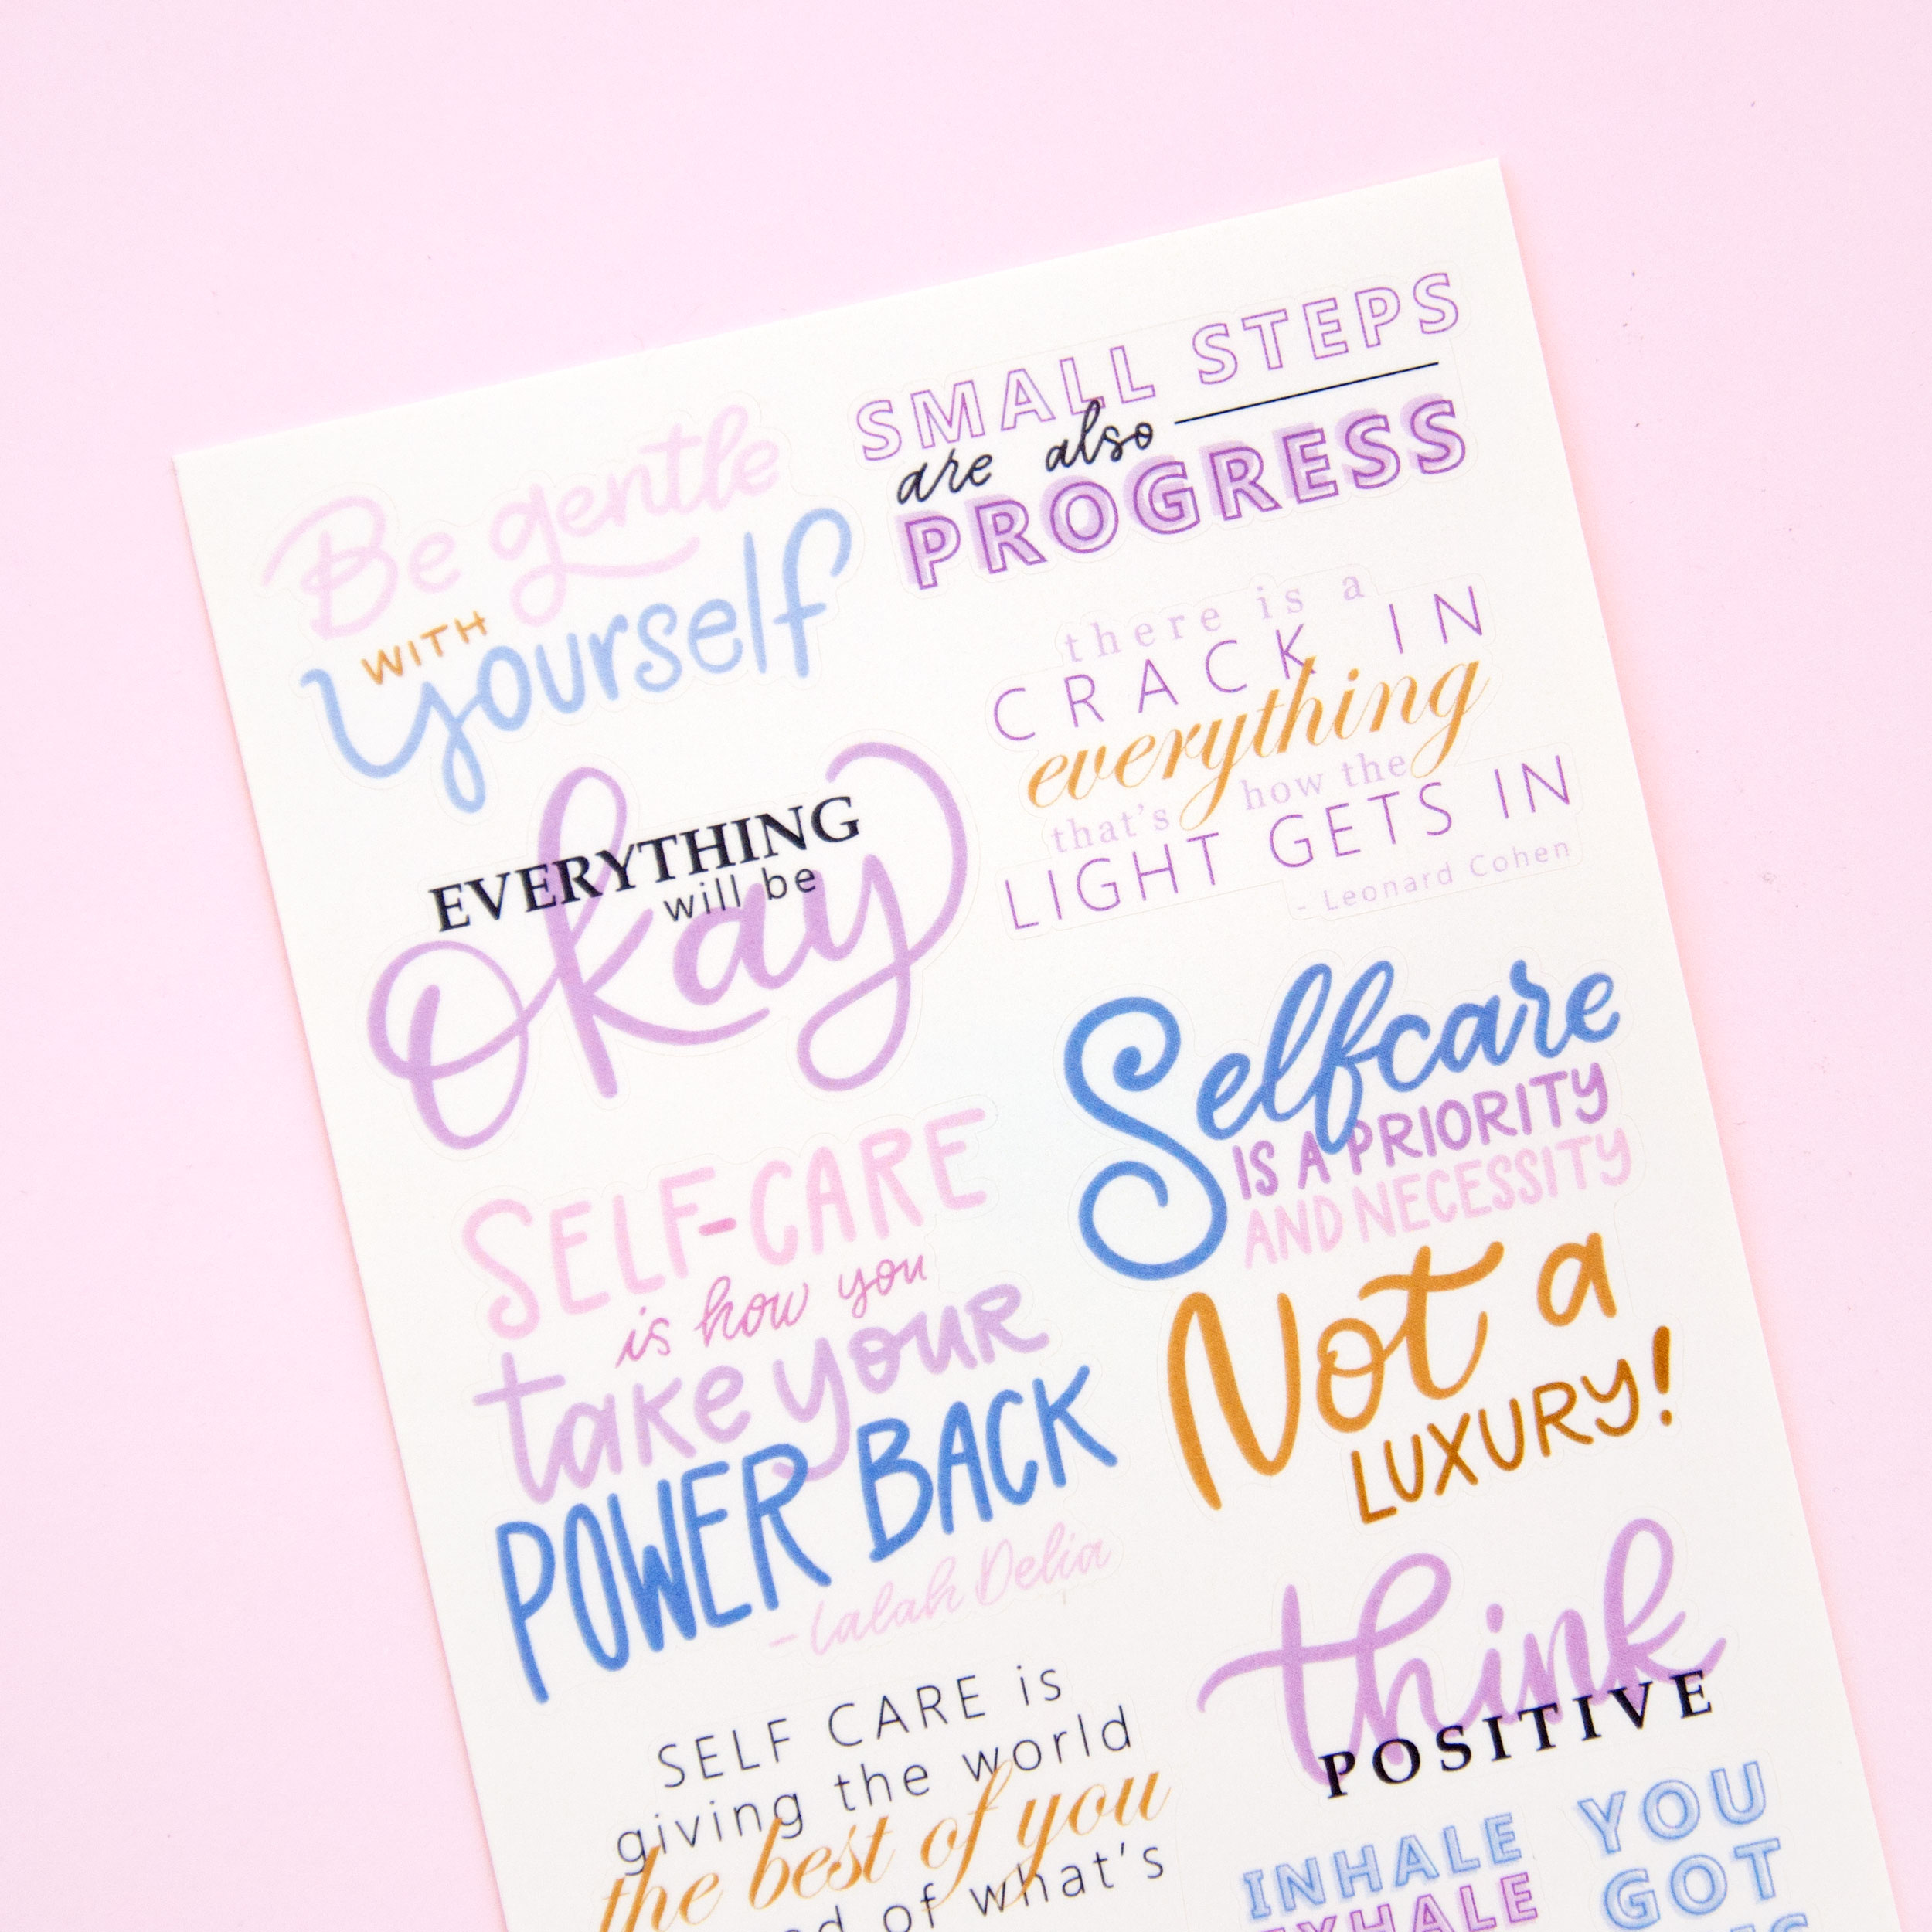 Be gentle
WITH
yourself
SMALL STEPS
are also
PROGRESS
EVERYTHING
will be
okay
there is a
CRACK IN
everything
that's how the
LIGHT GETS IN
- Leonard Cohen
SELF-CARE
is how you
take your
POWER BACK
- Lalah Delia
Selfcare
IS A PRIORITY
AND NECESSITY
Not a
LUXURY!
SELF CARE is
giving the world
the best of you
of what's
think
POSITIVE
INHALE
EXHALE
YOU
GOT